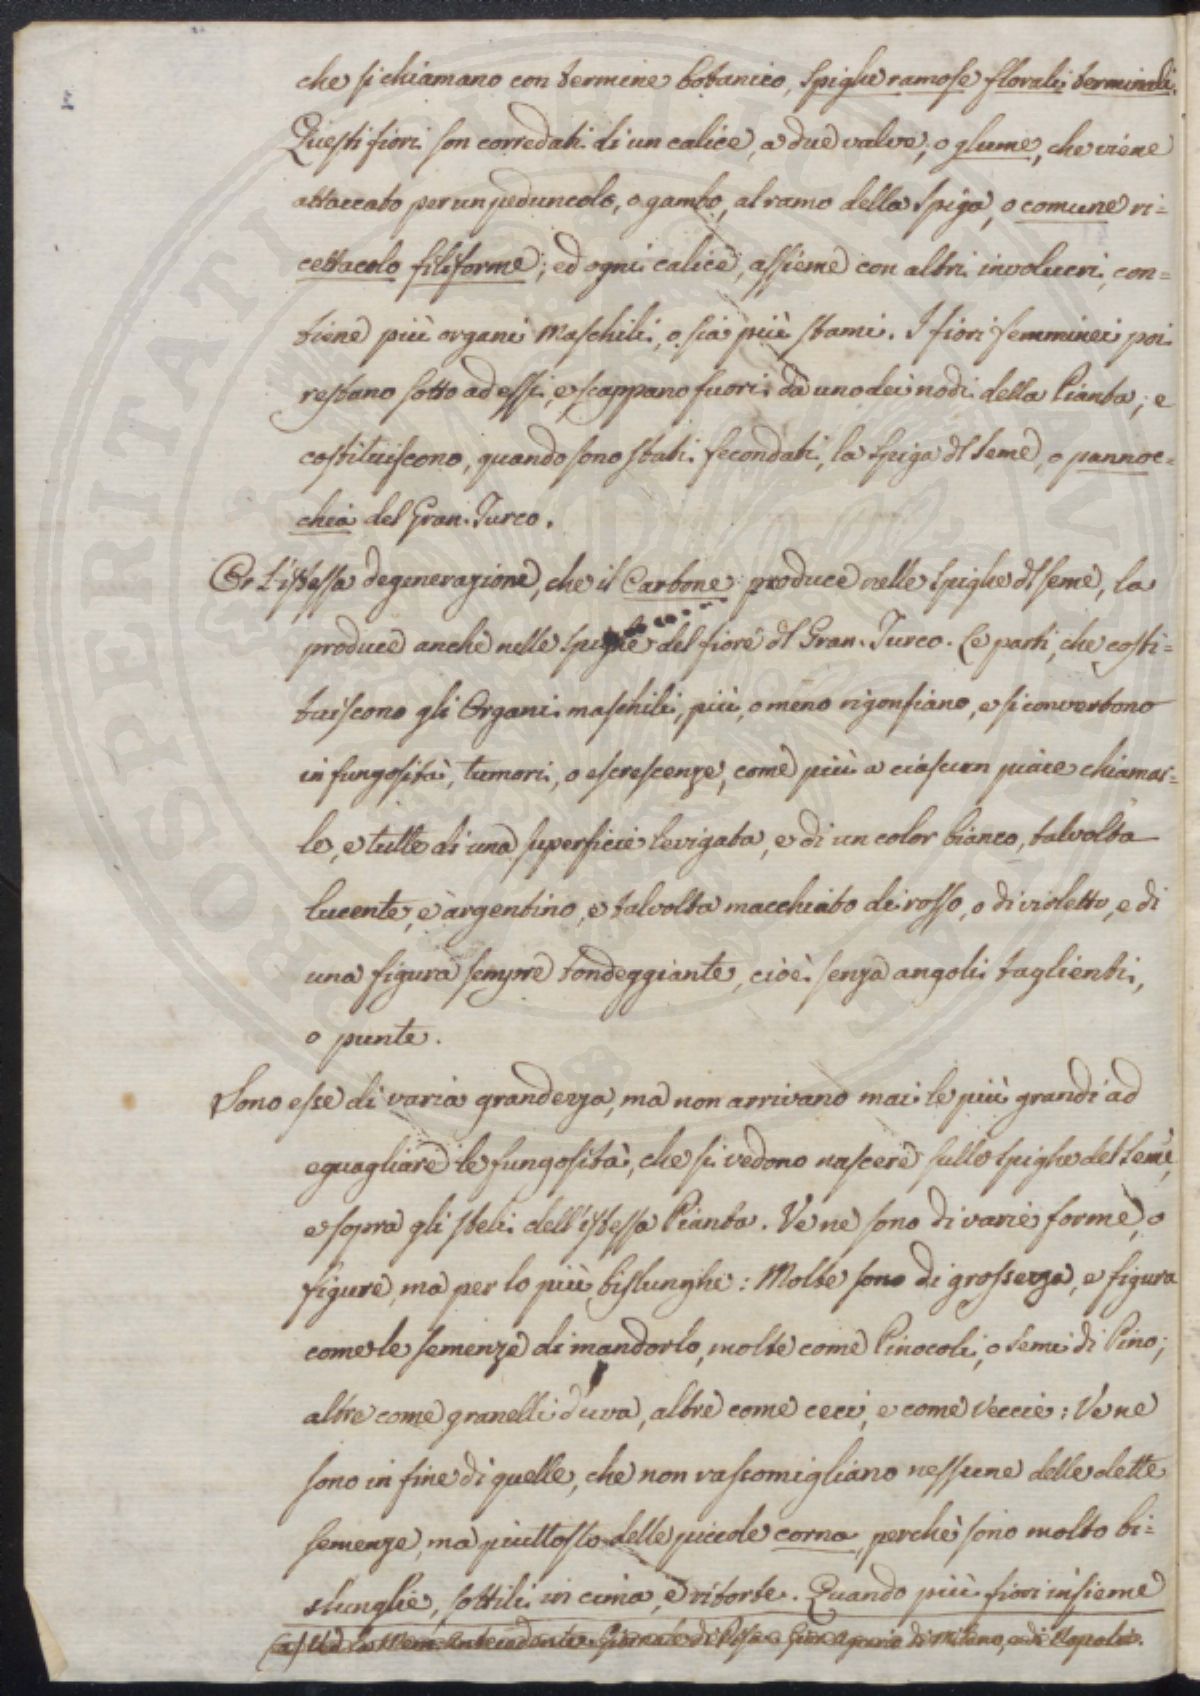 che si chiamano con termine botanico, spighe ramose florali terminali.
Questi fiori son corredati di un calice, a due valve, o glume, che viene
attaccato per un peduncolo, o gambo, al ramo della spiga, o comune ri=
cettacolo filiforme; ed ogni calice, assieme con altri involucri, con=
tiene più organi Maschili, o sia più stami. I fiori femminei poi
restano sotto ad essi, e scappano fuori da uno dei nodi della Pianta; e
costituiscono, quando sono stati fecondati, la spiga dl seme, o pannoc=
chia del Gran-Turco.
Or l'istessa degenerazione, che il Carbone produce nelle spighe dl seme, la
produce anche nelle spighe del fiore dl Gran-Turco. Le parti, che costi=
tuiscono gli Organi maschili, più, o meno rigonfiano, e si convertono
in fungosità, tumori, o escrescenze, come più a ciascun piace chiamar=
le, e tutte di una superficie levigata, e di un color bianco, talvolta
lucente, e argentino, e talvolta macchiato di rosso, o di violetto, e di
una figura sempre tondeggiante, cioè senza angoli taglienti,
o punte.
Sono esse di varia grandezza, ma non arrivano mai le più grandi ad
eguagliare le fungosità, che si vedono nascere sulle spighe del seme,
e sopra gli steli dell'istessa Pianta. Ve ne sono di varie forme, o
figure, ma per lo più bislunghe: Molte sono di grossezza, e figura
come le semenze di mandorlo, molte come Pinocoli, o semi di Pino;
altre come granelli d'uva, altre come ceci, e come Veccie: Ve ne
sono in fine di quelle, che non rassomigliano nessune delle dette
semenze, ma piuttosto delle piccole corna, perchè sono molto bi=
slunghe, sottili in cima, e ritorte. Quando più fiori insieme
(a) Ved. la Mem. antecedente Giornale di Pisa Gior. di Milano, e di Napoli.